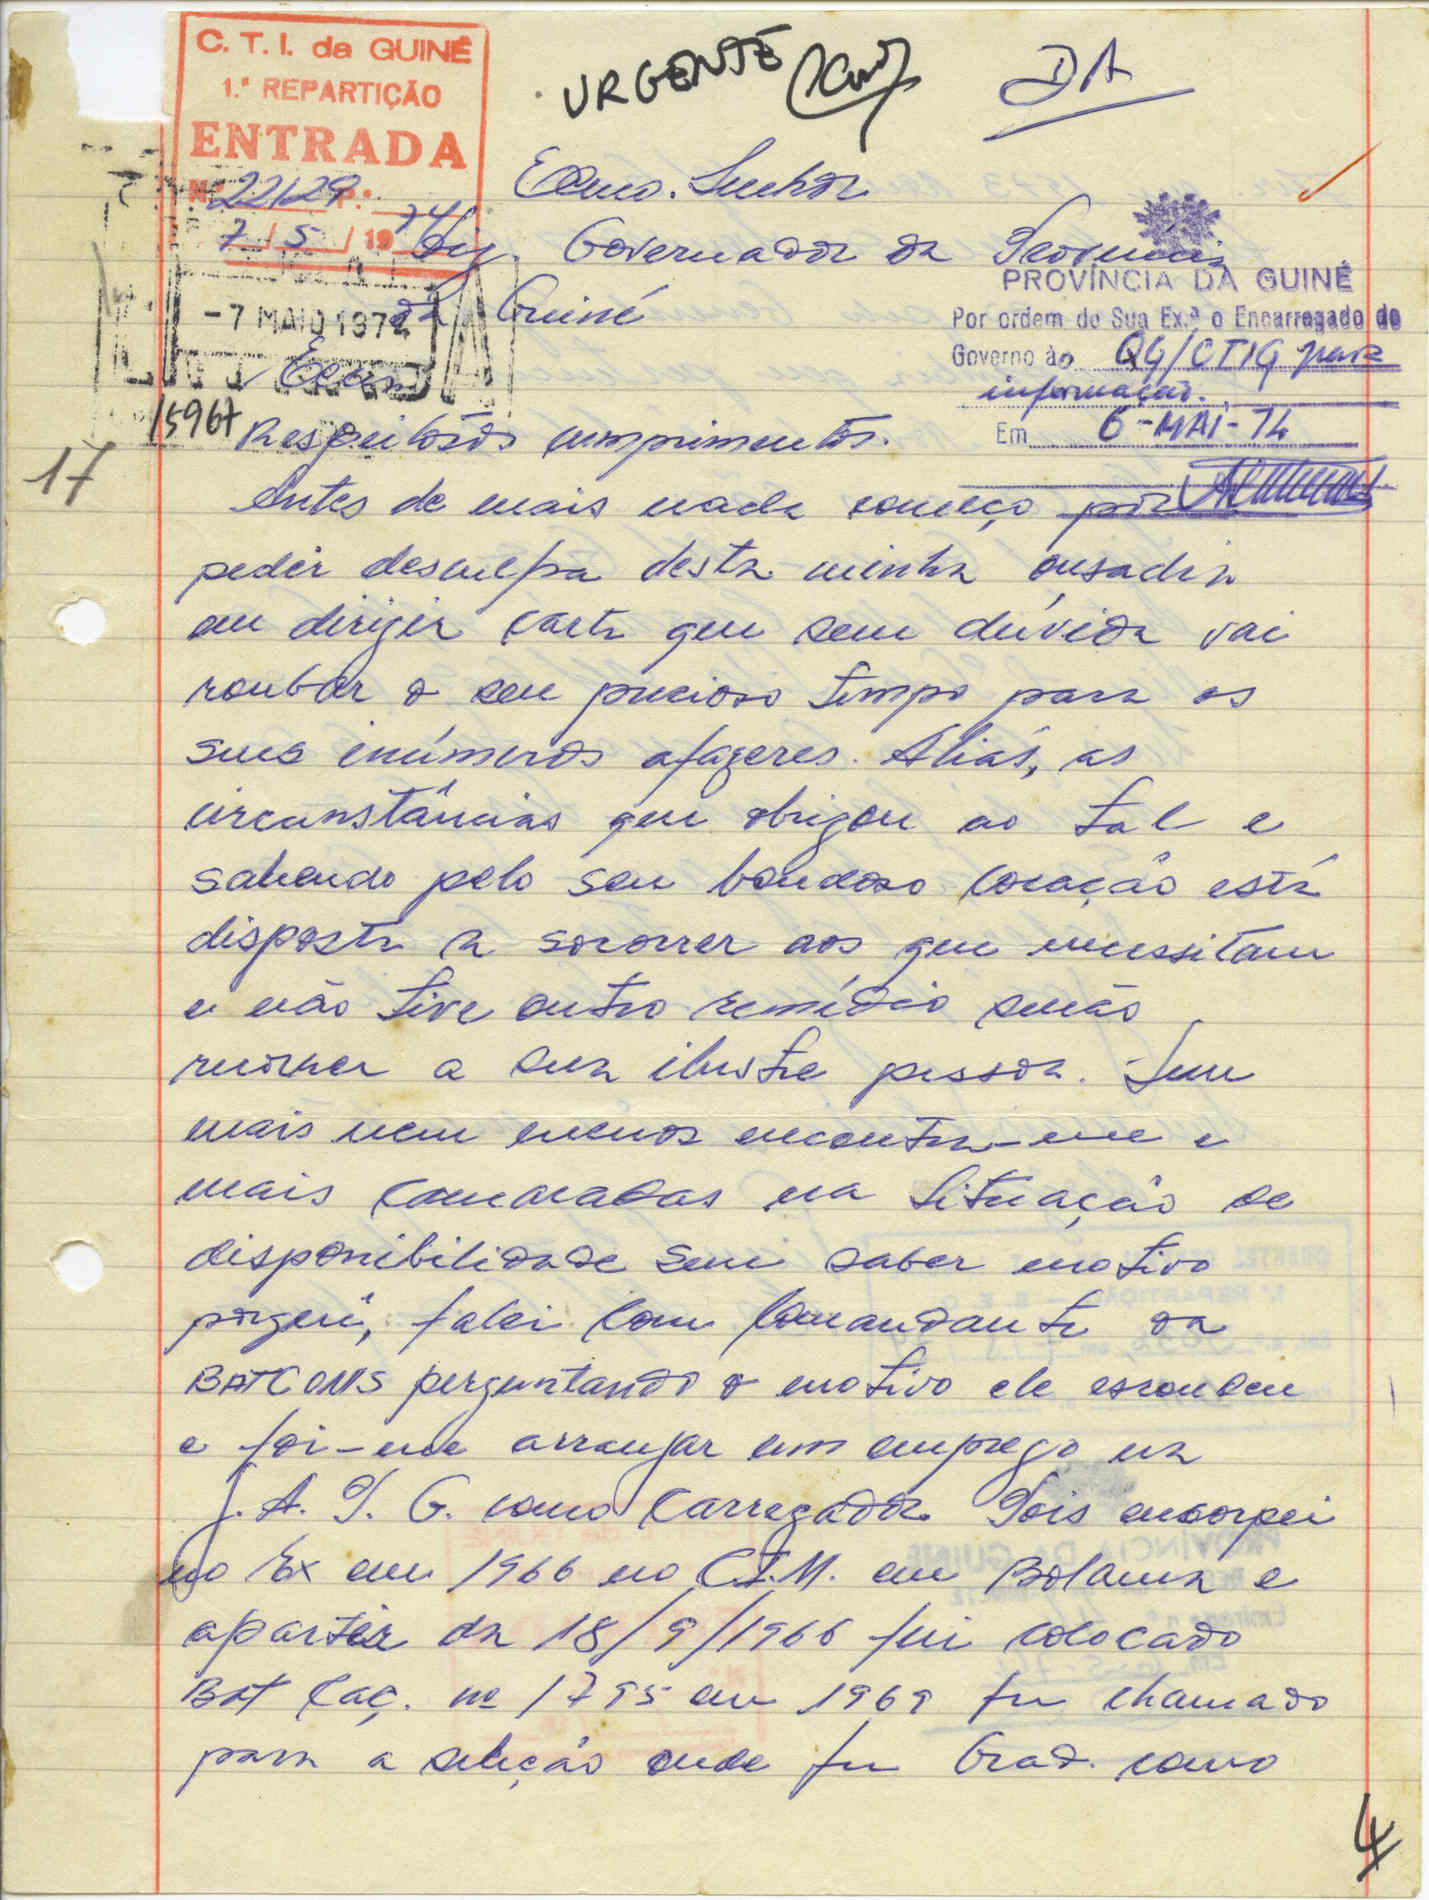 C. T. I. da GUINÉ
1.ª REPARTIÇÃO
ENTRADA
Nº 22129 P.
7 / 5 / 1974
URGENTE
DA
Exmo. Senhor
Governador da Província
da Guiné
-7 MAIO 1974
15967
17
PROVÍNCIA DA GUINÉ
Por ordem de Sua Ex.ª o Encarregado do
Governo ao QG/CTIG para
informação.
Em 6-MAI-74
Respeitosos cumprimentos.
Antes de mais nada começo por
pedir desculpa desta minha ousadia
em dirigir carta que sem dúvida vai
roubar o seu precioso tempo para os
seus inúmeros afazeres. Aliás, as
circunstâncias que obrigou ao tal e
sabendo pelo seu bondoso coração está
disposta a socorrer aos que necessitam
e não tive outro remédio senão
recorrer a sua ilustre pessoa. Sem
mais nem menos encontra-me e
mais camaradas na Situação de
disponibilidade sem saber motivo
porquê, falei com Comandante da
BATCOMS perguntando o motivo ele escondeu
e foi-me arranjar um emprego na
J. A. P. G. como Carregador. Pois encorpei
no Ex em 1966 no C.I.M. em Bolama e
apartir da 18/9/1966 fui colocado
Bat Caç. nº 1795 em 1969 fu chamado
para a seleção onde fu Grad. como
4